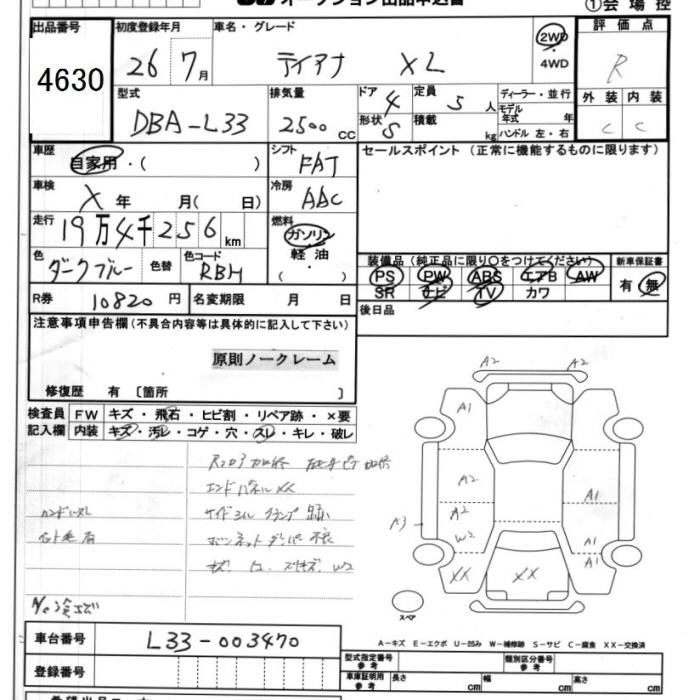 オークション出品申込書
①会場控
出品番号
4630
初度登録年月
26 7月
車名・グレード
ティアナ XL
2WD
・
4WD
評価点
R
外装 内装
C C
型式
DBA-L33
排気量
2500 cc
ドア 4
形状 S
定員 5 人
積載 kg
ディーラー・並行
モデル年式 年
ハンドル 左・右
車歴
自家用・( )
シフト
FAT
セールスポイント (正常に機能するものに限ります)
車検
X 年 月( 日)
冷房
AAC
走行
19万4千256km
燃料
ガソリン
軽油・
( )
色
ダークブルー
色替
色コード
RBH
装備品(純正品に限り〇をつけてください)
PS PW ABS エアB AW
SR ナビ TV カワ
新車保証書
有・無
R券 10820円
名変期限 月 日
後日品
注意事項申告欄(不具合内容等は具体的に記入して下さい)
原則ノークレーム
修復歴 有 〔箇所 〕
検査員
記入欄
FW キズ・飛石・ヒビ割・リペア跡・×要
内装 キズ・汚レ・コゲ・穴・スレ・キレ・破レ
エンドパネルXX
ハンドルスレ
ボンネットダンパー不良
A2 A2
A1
A2
A2
W2
A3
A1
A1
A1
XX
XX
スペア
A-キズ E-エクボ U-凹み W-補修跡 S-サビ C-腐食 XX-交換済
車台番号
L33-003470
登録番号
型式指定番号
参考
類別区分番号
参考
車庫証明用
参考
長さ cm
幅 cm
高さ cm